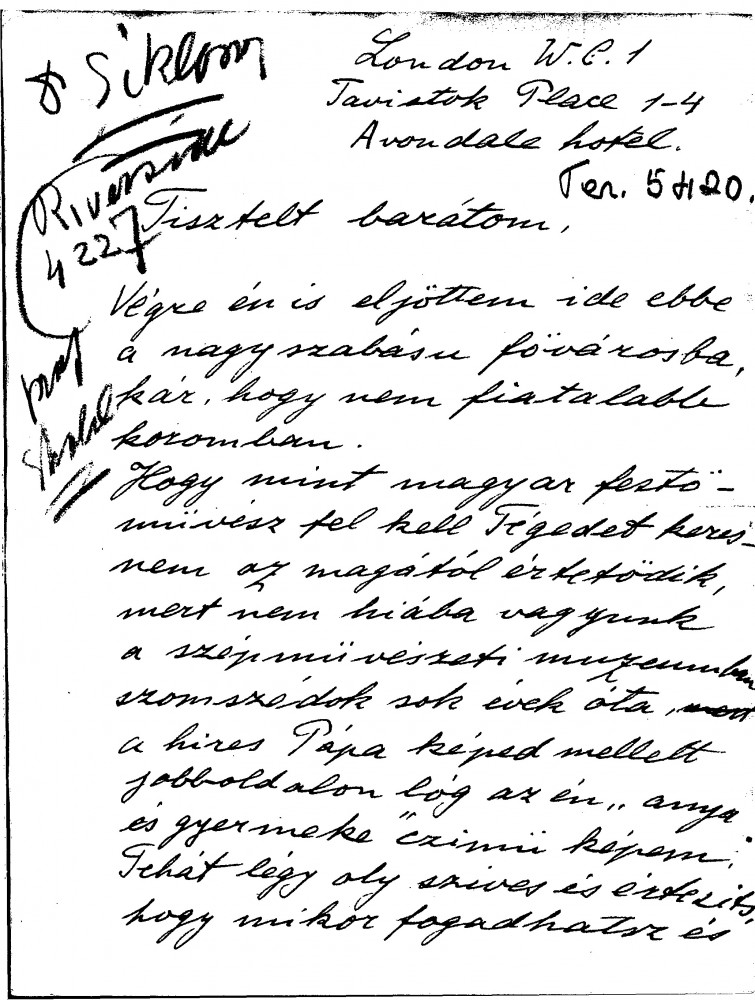 Dr Siklóssy
Riverside
4227
prof
London W.C.1
Tavistok Place 1-4
Avondale hotel.
Ter. 5420.
Tisztelt barátom,
Végre én is eljöttem ide ebbe
a nagyszabásu fővárosba,
kár, hogy nem fiatalabb
koromban.
Hogy mint magyar festő-
müvész fel kell Tégedet keres-
nem az magától értetödik,
mert nem hiába vagyunk
a szépmüvészeti muzeumban
szomszédok sok évek óta,
a hires Pápa képed mellett
jobboldalon lóg az én „anya
és gyermeke" czimü képem.
Tehát légy oly szives és értesits,
hogy mikor fogadhatsz és